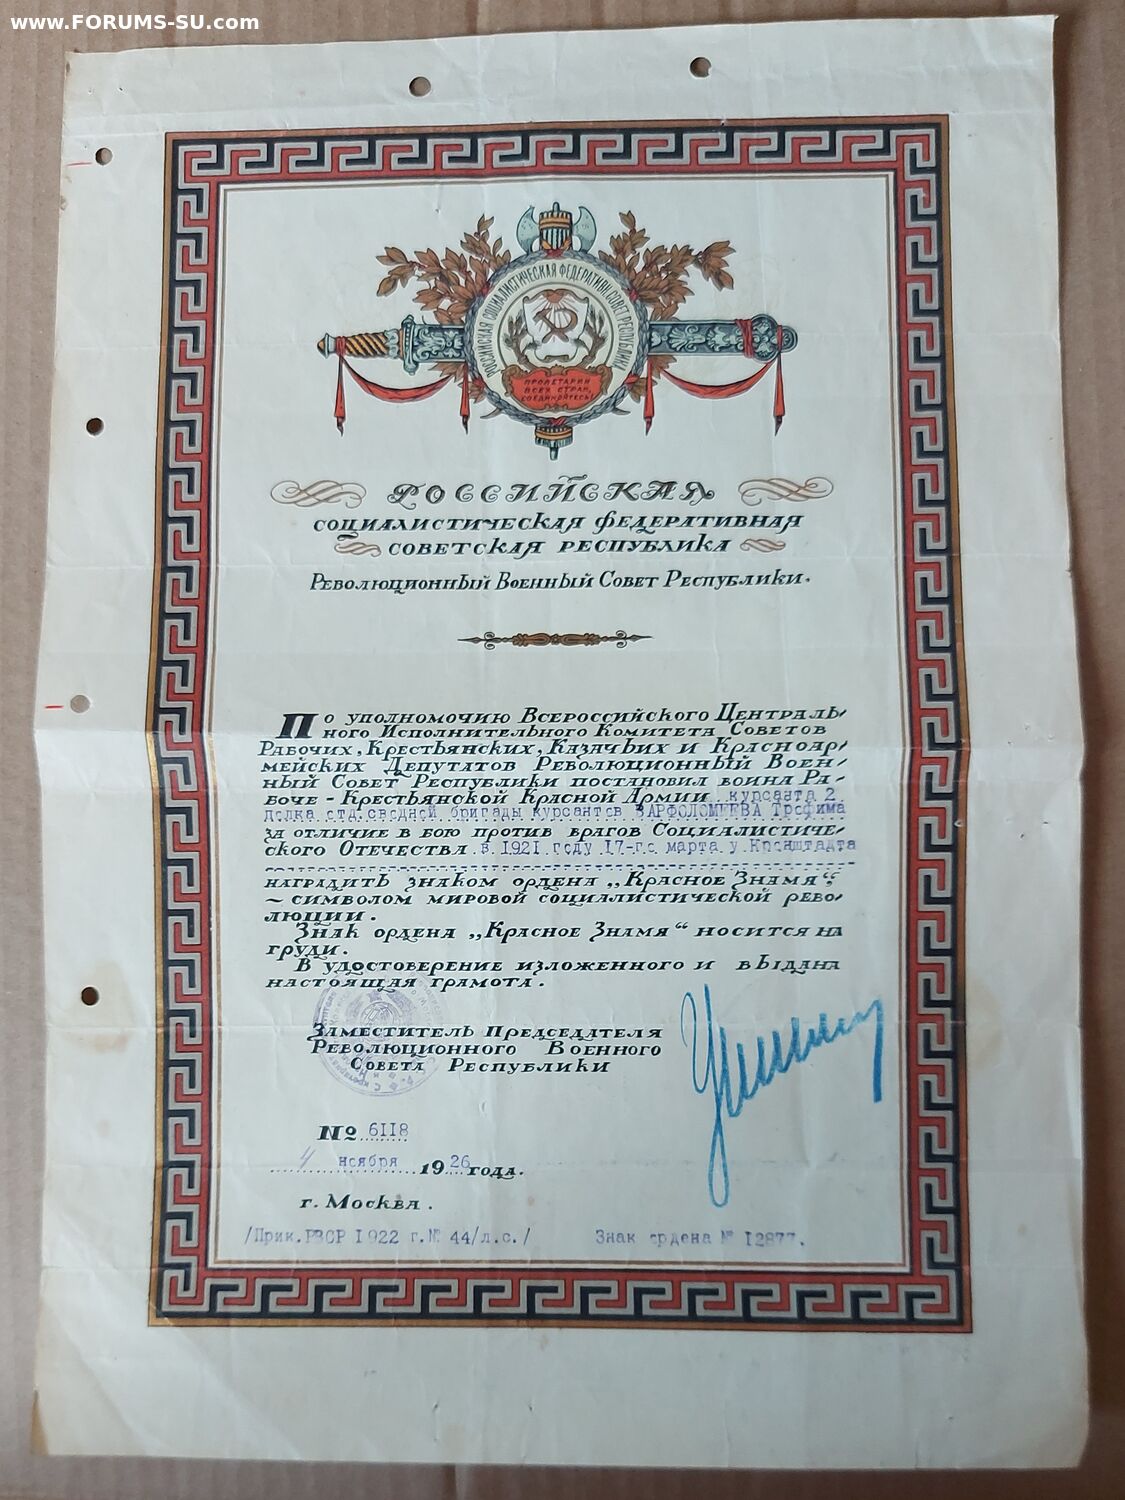 www.FORUMS-SU.com
РОССИЙСКАЯ СОЦИАЛИСТИЧЕСКАЯ ФЕДЕРАТИВН. СОВЕТ. РЕСПУБЛИКА
ПРОЛЕТАРИИ
ВСЕХ СТРАН,
СОЕДИНЯЙТЕСЬ!
РОССИЙСКАЯ
СОЦИАЛИСТИЧЕСКАЯ ФЕДЕРАТИВНАЯ
СОВЕТСКАЯ РЕСПУБЛИКА
РЕВОЛЮЦИОННЫЙ ВОЕННЫЙ СОВЕТ РЕСПУБЛИКИ.
ПО УПОЛНОМОЧИЮ ВСЕРОССИЙСКОГО ЦЕНТРАЛЬ-
НОГО ИСПОЛНИТЕЛЬНОГО КОМИТЕТА СОВЕТОВ
РАБОЧИХ, КРЕСТЬЯНСКИХ, КАЗАЧЬИХ И КРАСНОАР-
МЕЙСКИХ ДЕПУТАТОВ РЕВОЛЮЦИОННЫЙ ВОЕН-
НЫЙ СОВЕТ РЕСПУБЛИКИ ПОСТАНОВИЛ ВОИНА РА-
БОЧЕ-КРЕСТЬЯНСКОЙ КРАСНОЙ АРМИИ курсанта 2
полка отд.сводной бригады курсантов ВАРФОЛОМЕЕВА Трофима
ЗА ОТЛИЧИЕ В БОЮ ПРОТИВ ВРАГОВ СОЦИАЛИСТИЧЕ-
СКОГО ОТЕЧЕСТВА в 1921 году 17-го марта у Кронштадта
НАГРАДИТЬ ЗНАКОМ ОРДЕНА „КРАСНОЕ ЗНАМЯ“,
~ СИМВОЛОМ МИРОВОЙ СОЦИАЛИСТИЧЕСКОЙ РЕВО-
ЛЮЦИИ.
ЗНАК ОРДЕНА „КРАСНОЕ ЗНАМЯ“ НОСИТСЯ НА
ГРУДИ.
В УДОСТОВЕРЕНИЕ ИЗЛОЖЕННОГО И ВЫДАНА
НАСТОЯЩАЯ ГРАМОТА.
ЗАМЕСТИТЕЛЬ ПРЕДСЕДАТЕЛЯ
РЕВОЛЮЦИОННОГО ВОЕННОГО
СОВЕТА РЕСПУБЛИКИ
№ 6118
4 ноября 1926 года.
г. МОСКВА.
/Прик.РВСР 1922 г.№ 44/л.с./ Знак ордена № 12877.